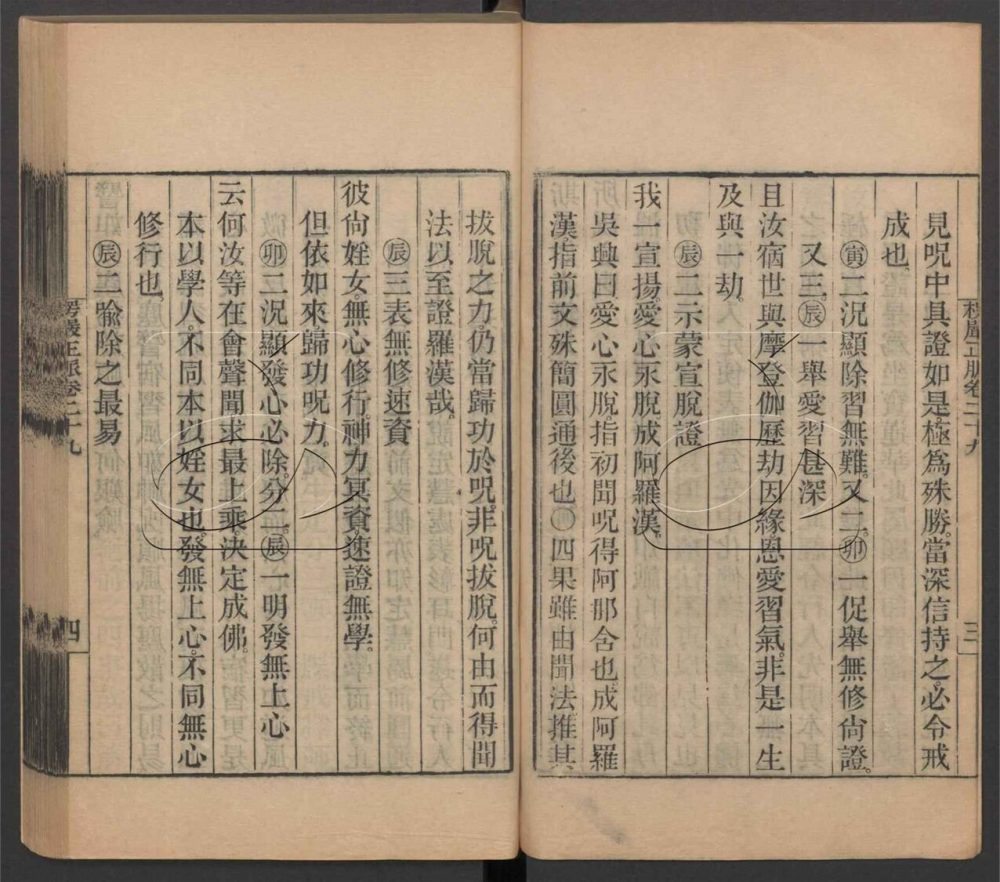 見呪中具證如是極爲殊勝。當深信持之。必令戒
成也。
㊞寅二況顯除習無難。又二。卯一促舉無修尙證。
又三。辰一舉愛習甚深
且汝宿世與摩登伽歷劫因緣。恩愛習氣。非是一生
及與一劫。
辰二示蒙宣脫證
我一宣揚。愛心永脫。成阿羅漢。
吳興曰愛心永脫指初聞呪得阿那含也成阿羅
漢指前文殊簡圓通後也四果雖由聞法推其
三
拔脫之力。仍當歸功於呪。非呪拔脫。何由而得聞
法以至證羅漢哉。
辰三表無修速資
彼尙婬女。無心修行。神力冥資。速證無學。
但依如來歸功呪力。
卯二況顯發心必除。分二。辰一明發無上心
云何汝等在會聲聞。求最上乘。決定成佛。
本以學人。不同本以婬女也。發無上心。不同無心
修行也。
辰二喻除之最易
正脈卷二十九
四